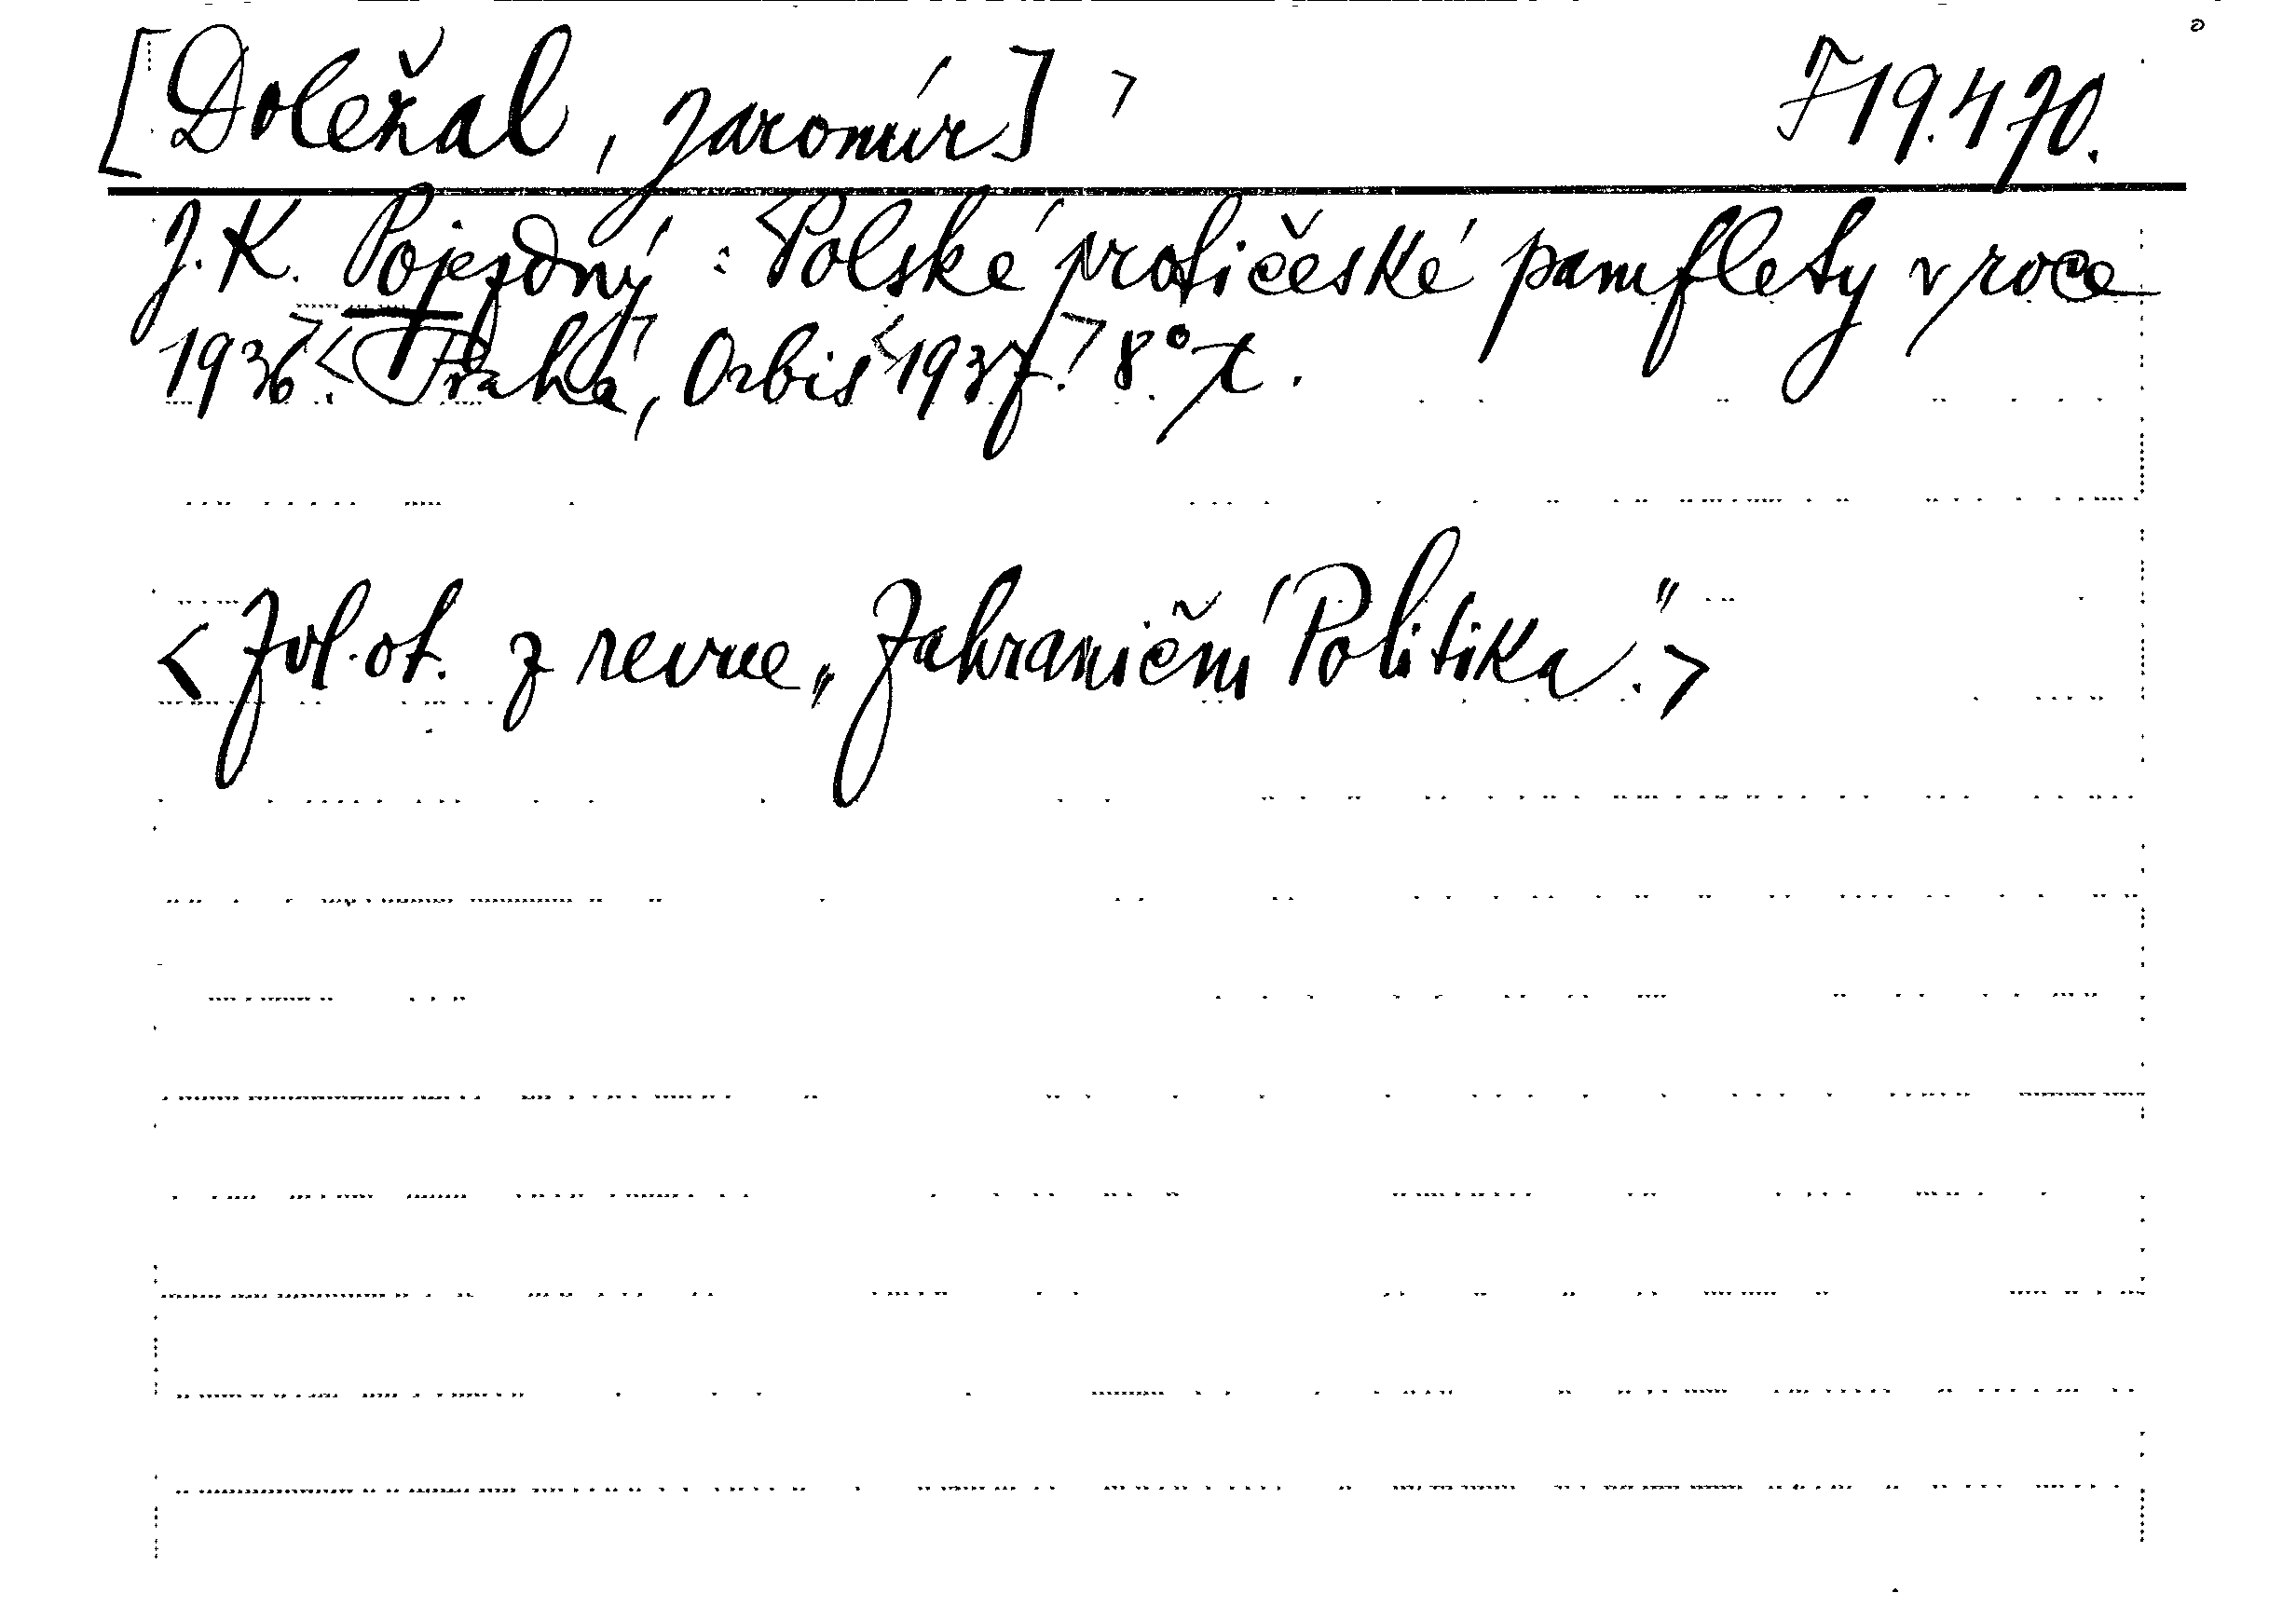 [Doležal, Jaromír] > F 19.470.
J. K. Pojezdný : <Polské protičeské pamflety v roce
1936.> <Praha,> Orbis <1937.> 8°.
<Zvl. ot. z revue „Zahraniční Politika.">